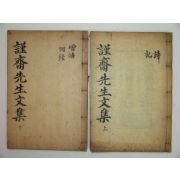 謹齋先生文集 上
詩
記
謹齋先生文集
增補
附錄